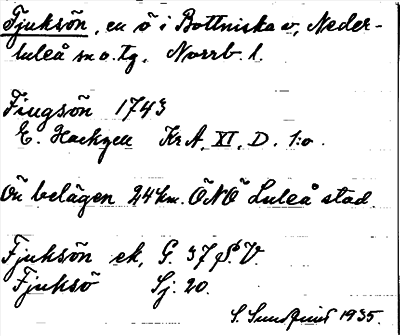 Fjuksön, en ö i Bottniska v, Neder-
luleå sn o. tg, Norrb. l.
Fiugsön 1743
E. Hackzell KrA, XI, D. 1:o.
Ön belägen 24 km. ÖNÖ Luleå stad.
Fjuksön ek, G. 37 V.
Fjuksö Sj: 20.
S. Sundqvist 1935.